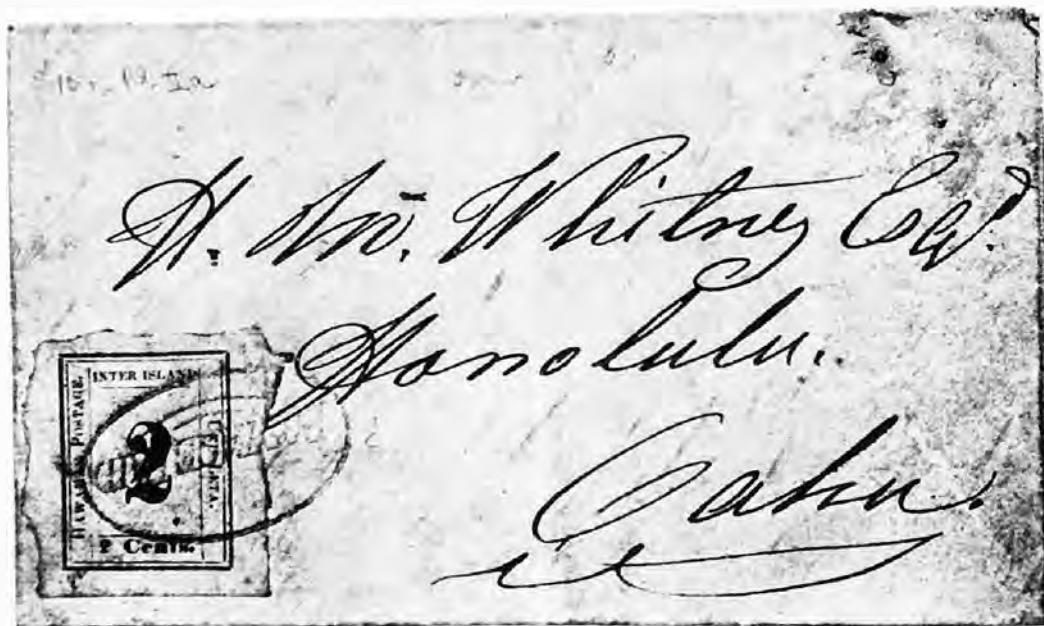 H. M. Whitney Esqr.
Honolulu.
Oahu.
INTER ISLAND
HAWAIIAN POSTAGE.
2
UKU LETA.
2 Cents.